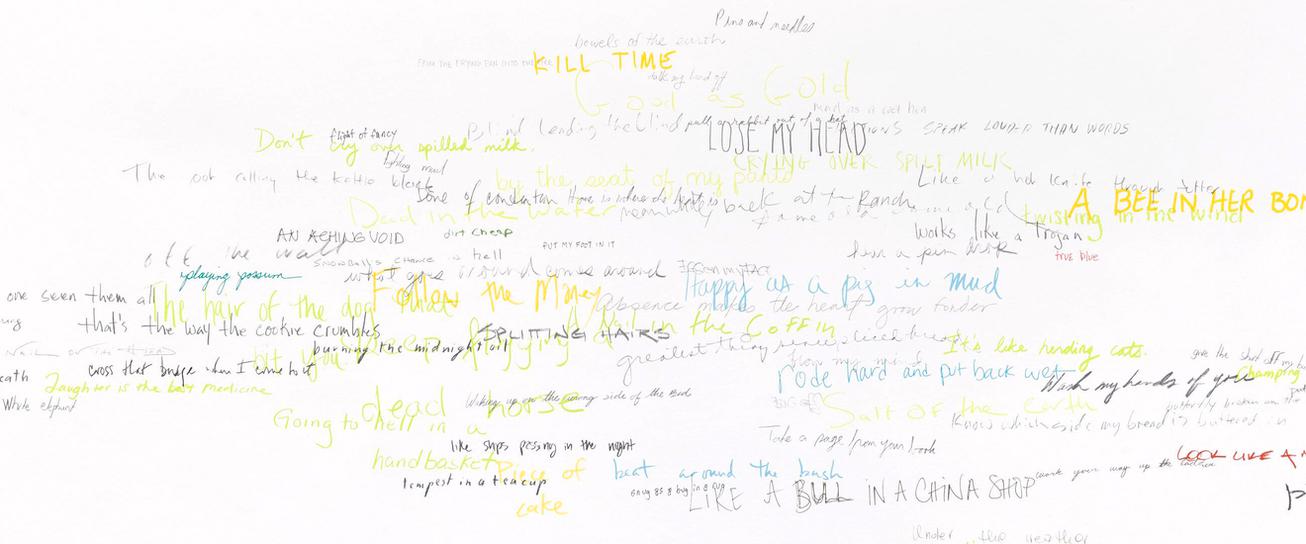 Pins and needles
bowels of the earth
FROM THE FRYING PAN INTO THE FIRE
KILL TIME
talk my head off
Good as Gold
mad as a wet hen
Blind leading the blind
pull a rabbit out of a hat
LOSE MY HEAD
SPEAK LOUDER THAN WORDS
flight of fancy
Don't cry over spilled milk.
CRYING OVER SPILT MILK
fighting mad
The pot calling the kettle black
by the seat of my pants
Like a hot knife through butter
Bone of contention
Home is where the heart is
A BEE IN HER BON
Dead in the water
meanwhile back at the Ranch
twisting in the wind
AN ACHING VOID
dirt cheap
works like a Trojan
PUT MY FOOT IN IT
off the wall
hear a pin drop
true blue
SNOWBALL'S CHANCE in hell
playing possum
what goes around comes around
EGG ON MY FACE
Happy as a pig in mud
one seen them all
The hair of the dog that
bit you
Follow the Money
Absence makes the heart grow fonder
that's the way the cookie crumbles
SPLITTING HAIRS
Nail in the Coffin
NAIL ON THE HEAD
burning the midnight oil
greatest thing since sliced bread
It's like herding cats.
give the shirt off my
cross that bridge when I come to it
Keep flogging a
dead horse
blow my mind
rode hard and put back wet
Wash my hands of you
Champing
Laughter is the best medicine
White elephant
Waking up on the wrong side of the Bed
Salt of the earth
butterfly broken on the
Going to hell in a
handbasket
Know which side my bread is buttered on
like ships passing in the night
Take a page from your book
LOOK LIKE A
Piece of
cake
beat around the bush
work your way up the ladder
Tempest in a teacup
snug as a bug in a rug
LIKE A BULL IN A CHINA SHOP
Under the weather